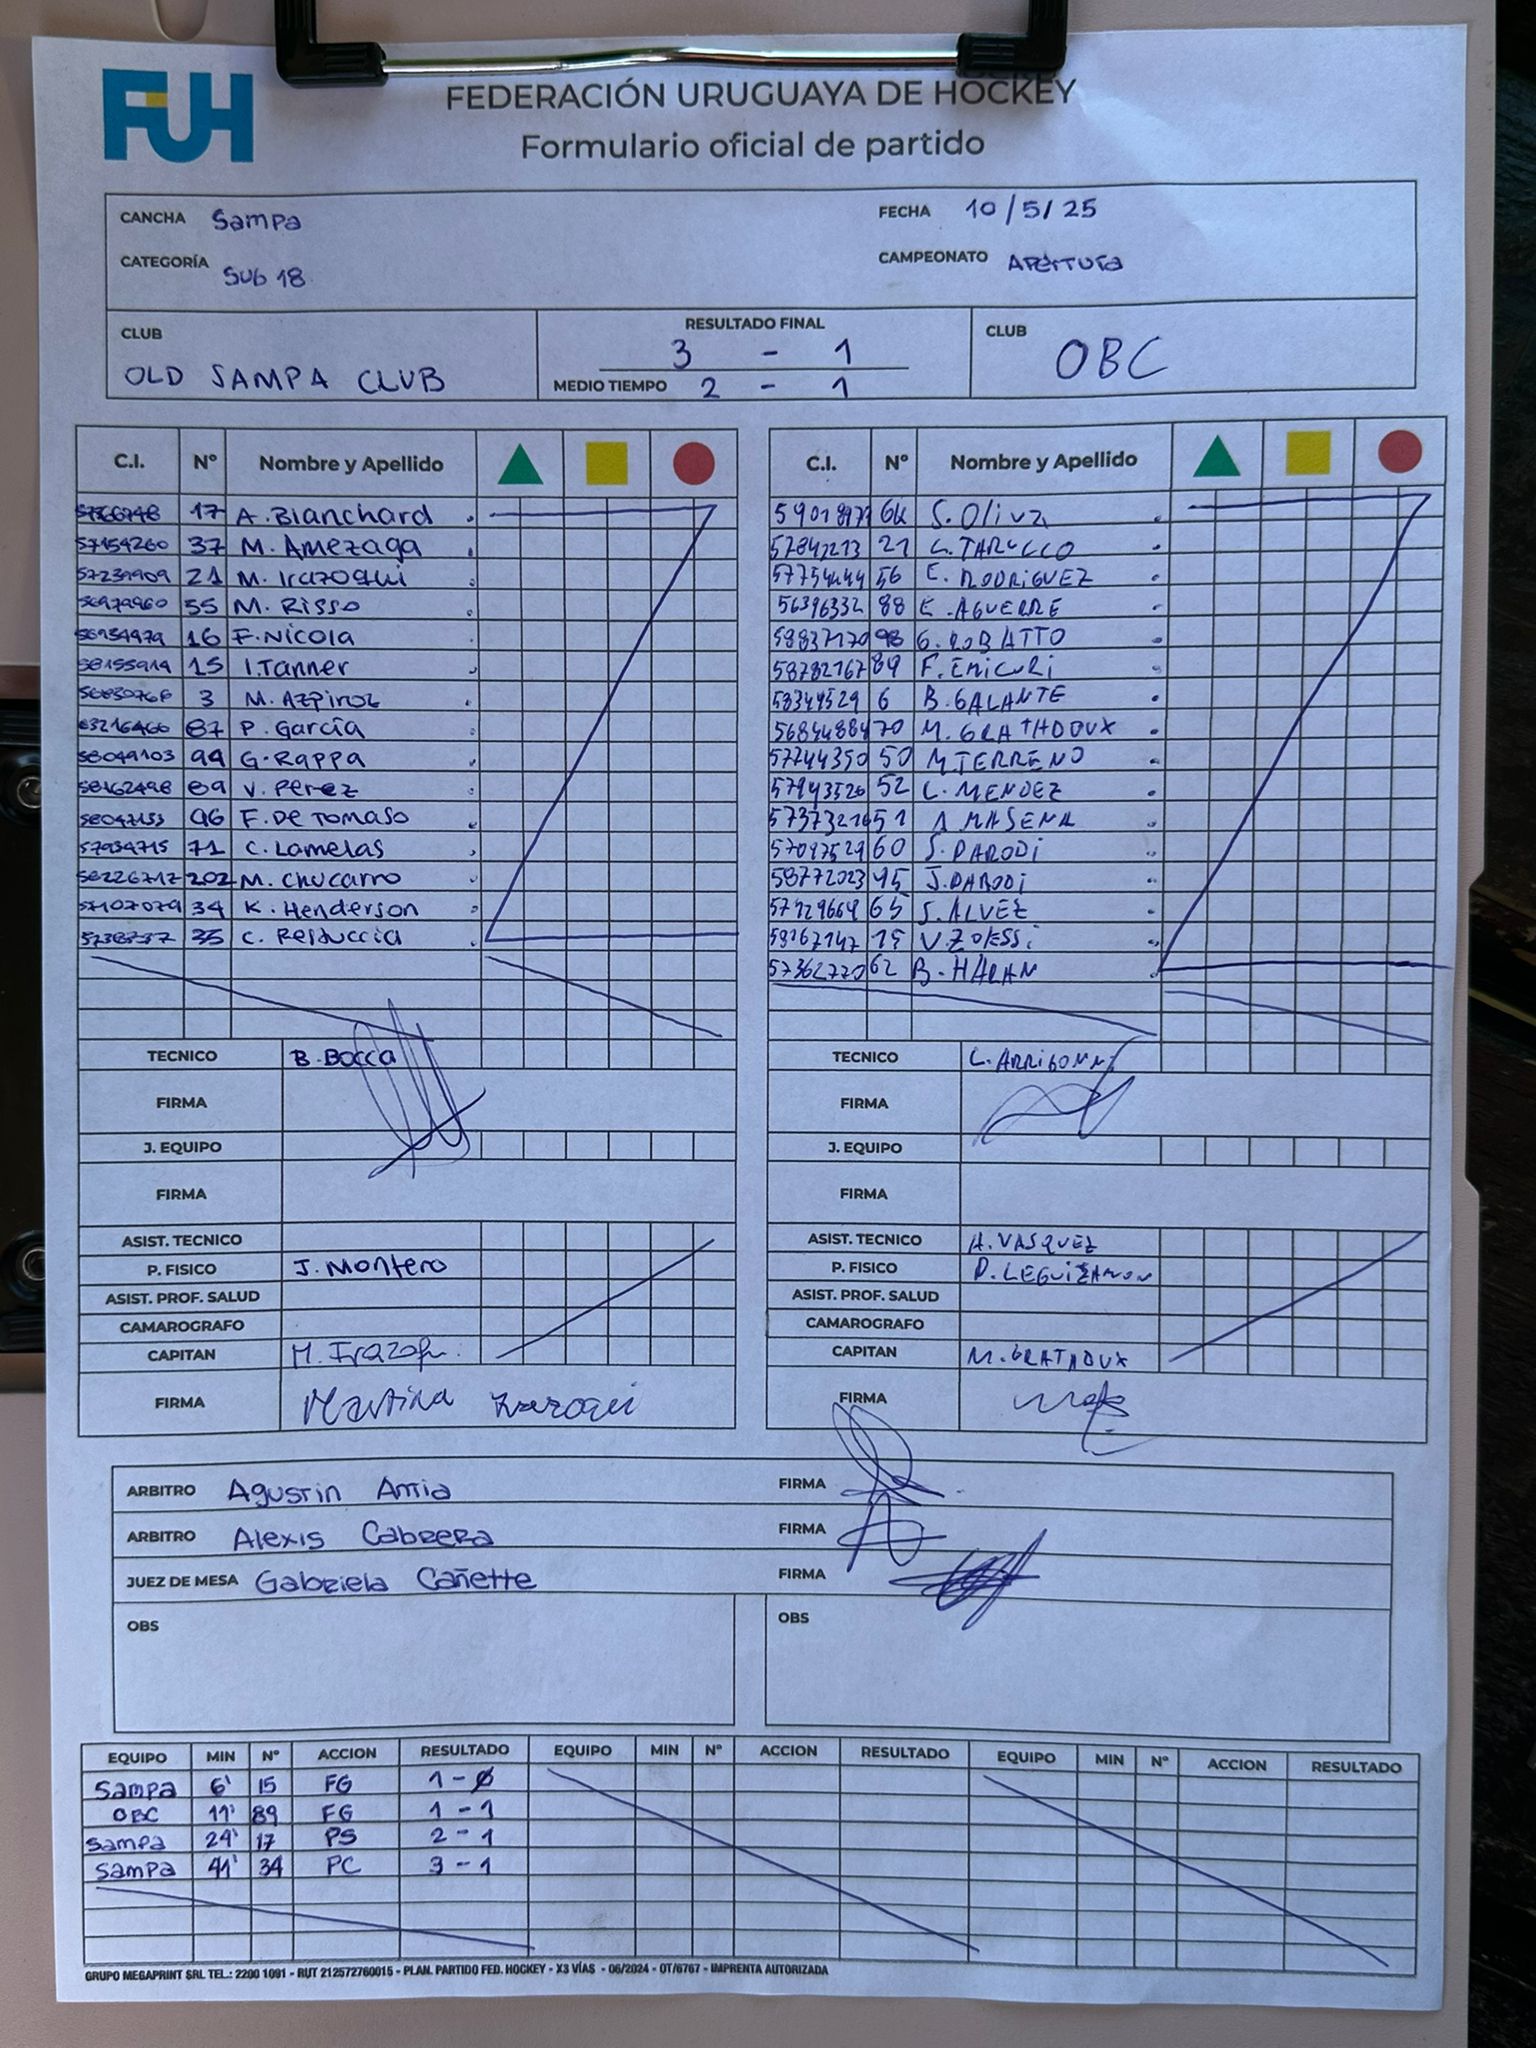 FUH
FEDERACIÓN URUGUAYA DE HOCKEY
Formulario oficial de partido
CANCHA Sampa FECHA 10/5/25
CATEGORÍA SUB 18 CAMPEONATO APERTURA
CLUB OLD SAMPA CLUB
RESULTADO FINAL 3 - 1
MEDIO TIEMPO 2 - 1
CLUB OBC
C.I. Nº Nombre y Apellido
17 A. Blanchard
57154260 37 M. Amezaga
57239909 21 M. Irazoqui
56979960 55 M. Risso
16 F. Nicola
15 I. Tanner
3 M. Azpiroz
63216466 87 P. García
58049103 94 G. Rappa
58162498 89 V. Perez
96 F. De Tomaso
57934715 71 C. Lamelas
58226717 202 M. Chucarro
34 K. Henderson
35 C. Restuccia
TECNICO B. Bocca
FIRMA
J. EQUIPO
FIRMA
ASIST. TECNICO
P. FISICO J. Montero
ASIST. PROF. SALUD
CAMAROGRAFO
CAPITAN M. Irazoqui
FIRMA Martina Irazoqui
C.I. Nº Nombre y Apellido
S. Oliva
21
56 E. RODRIGUEZ
56396332 88 E. AGUERRE
98 G. LOBATTO
58782167 89
58349529 6 B. GALANTE
70 M. GRATHDOUX
57744350 50 M. TERRENO
57943520 52 C. MENDEZ
51
60 S. PARODI
58772023 45 J. PARODI
57929669 65 S. ALVEZ
59167147 15
57362770 62 B. HARAN
TECNICO
FIRMA
J. EQUIPO
FIRMA
ASIST. TECNICO A. VASQUEZ
P. FISICO D. LEGUIZAMON
ASIST. PROF. SALUD
CAMAROGRAFO
CAPITAN M. GRATADUX
FIRMA
ARBITRO Agustin Amia FIRMA
ARBITRO Alexis Cabrera FIRMA
JUEZ DE MESA Gabriela Cañette FIRMA
OBS OBS
EQUIPO MIN Nº ACCION RESULTADO EQUIPO MIN Nº ACCION RESULTADO EQUIPO MIN Nº ACCION RESULTADO
Sampa 6' 15 FG 1 - 0
OBC 11' 89 FG 1 - 1
Sampa 29' 17 PS 2 - 1
Sampa 41' 34 PC 3 - 1
GRUPO MEGAPRINT SRL TEL.: 2200 1091 - RUT 212572760015 - PLAN. PARTIDO FED. HOCKEY - X3 VÍAS - 06/2024 - OT/6767 - IMPRENTA AUTORIZADA